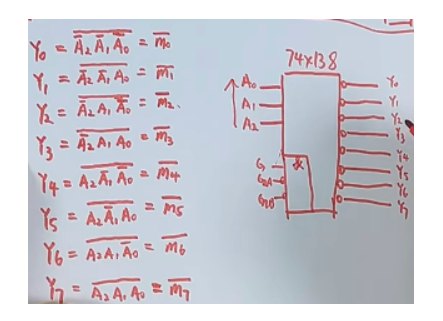 Y₀ = \overline{\overline{A}₂ \overline{A}₁ \overline{A}₀} = \overline{m₀}
Y₁ = \overline{\overline{A}₂ \overline{A}₁ A₀} = \overline{m₁}
Y₂ = \overline{\overline{A}₂ A₁ \overline{A}₀} = \overline{m₂}.
Y₃ = \overline{\overline{A}₂ A₁ A₀} = \overline{m₃}
Y₄ = \overline{A₂ \overline{A}₁ \overline{A}₀} = \overline{m₄}
Y₅ = \overline{A₂ \overline{A}₁ A₀} = \overline{m₅}
Y₆ = \overline{A₂ A₁ \overline{A}₀} = \overline{m₆}
Y₇ = \overline{A₂ A₁ A₀} = \overline{m₇}
74x138
A₀
A₁
A₂
G₁
&
G₂A
G₂B
Y₀
Y₁
Y₂
Y₃
Y₄
Y₅
Y₆
Y₇